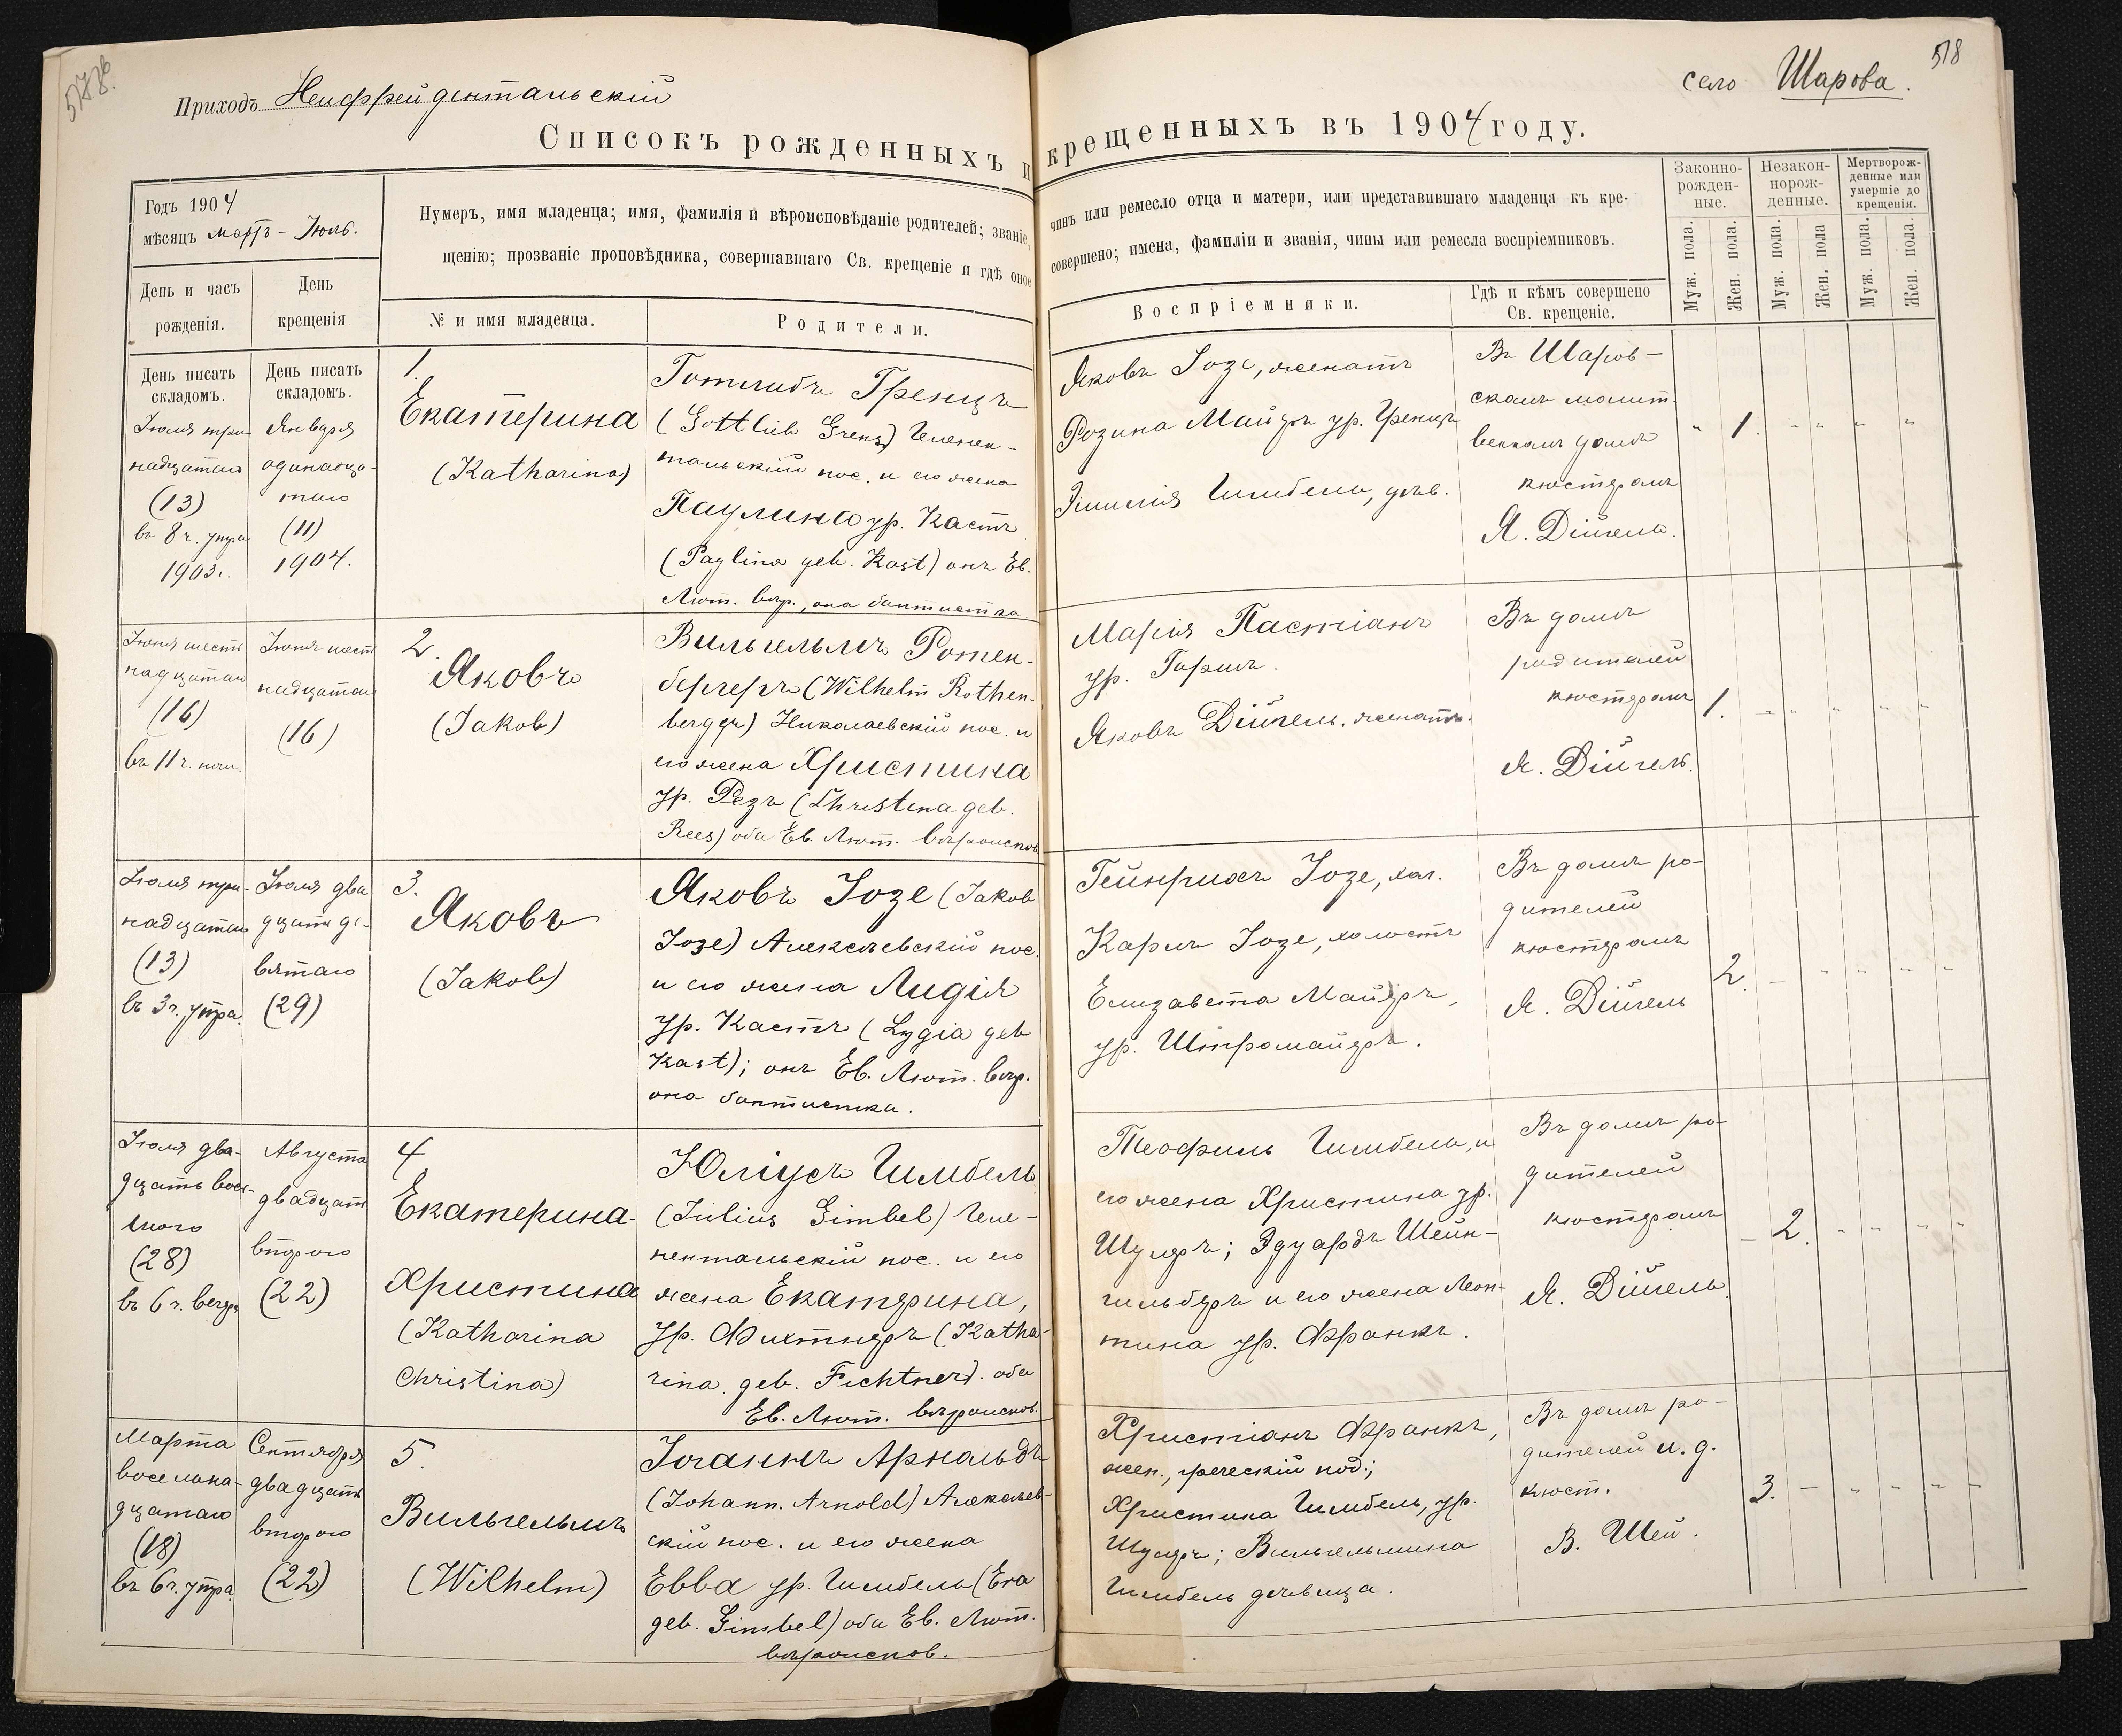 517об.
Приходъ Нейфрейдентальскій
село Шарова.
518
Списокъ рожденныхъ и крещенныхъ въ 1904 году.
Годъ 1904
мѣсяцъ мартъ – Іюль.
День и часъ
рожденія.
День
крещенія
Нумеръ, имя младенца; имя, фамилія и вѣроисповѣданіе родителей; званіе, чинъ или ремесло отца и матери, или представившаго младенца къ кре-
щенію; прозваніе проповѣдника, совершавшаго Св. крещеніе и гдѣ оное совершено; имена, фамиліи и званія, чины или ремесла воспріемниковъ.
№ и имя младенца.
Родители.
Воспріемники.
Гдѣ и кѣмъ совершено
Св. крещеніе.
Законно-
рожден-
ные.
Незакон-
норож-
денные.
Мертворож-
денные или
умершіе до
крещенія.
Муж. пола.
Жен. пола.
Муж. пола.
Жен. пола
Муж. пола.
Жен. пола.
День писать
складомъ.
Іюля три-
надцатаго
(13)
въ 8 ч. утра
1903 г.
День писать
складомъ.
Января
одинадца-
таго
(11)
1904.
1.
Екатерина
(Katharina)
Готлибъ Гренцъ
(Gottlieb Grenz)
пос. и его жена
Паулина ур. Кастъ
(Paylina geb. Kast) онъ Ев.
Лют. вѣр., она баптистка.
Яковъ Іозе, женатъ
Розина Майеръ ур. Гренцъ
Эмилія Гимбель, дѣв.
Въ Шаров-
скомъ молит-
венномъ домѣ
кюстеромъ
Я. Дійгель.
" 1. " " " "
Іюня шест-
надцатаго
(16)
въ 11 ч. ночи.
Іюня шест-
надцатаго
(16)
2.
Яковъ
(Jakob)
Вильгельмъ Ротен-
бергеръ (Wilhelm Rothen-
berger) Николаевскій пос. и
его жена Христина
ур. Резъ (Christina geb.
Rees) оба Ев. Лют. вѣроиспов.
Марія Пастіанъ
ур.
Яковъ Дійгель, женатъ.
Въ домѣ
родителей
кюстеромъ
Я. Дійгель.
1. " " " " "
Іюля три-
надцатаго
(13)
въ 3 ч. утра.
Іюля два-
дцать де-
вятаго
(29)
3.
Яковъ
(Jakob)
Яковъ Іозе (Jakob
Jose) Алексѣевскій пос.
и его жена Лидія
ур. Кастъ (Lydia geb
Kast); онъ Ев. Лют. вѣр.
она баптистка.
Гейнрихъ Іозе, хол.
Карлъ Іозе, холостъ
Елизавета Майеръ,
ур. Штромайеръ.
Въ домѣ ро-
дителей
кюстеромъ
Я. Дійгель
2. – " " " "
Іюля два-
дцать вось-
мого
(28)
въ 6 ч. вечера
Августа
двадцать
второго
(22)
4
Екатерина-
Христина
(Katharina
Christina)
Юліусъ Гимбель
(Julius Gimbel)
пос. и его
жена Екатерина,
ур. Фихтнеръ (Katha-
rina geb. Fichtner). оба
Ев. Лют. вѣроиспов.
Теофиль Гимбель, и
его жена Христина ур.
Шулеръ; Эдуардъ Шейн-
гильберъ и его жена Леон-
тина ур. Франкъ.
Въ домѣ ро-
дителей
кюстеромъ
Я. Дійгель.
– 2. " " " "
Марта
восемна-
дцатаго
(18)
въ 6 ч. утра.
Сентября
двадцать
второго
(22)
5.
Вильгельмъ
(Wilhelm)
Іоганнъ Арнольдъ
(Johann. Arnold) Алексѣев-
скій пос. и его жена
Евва ур. Гимбель (Eva
geb. Gimbel) оба Ев. Лют.
вѣроиспов.
Христіанъ Франкъ,
жен., греческій под.;
Христина Гимбель, ур.
Шулеръ; Вильгельмина
Гимбель дѣвица.
Въ домѣ ро-
дителей и. д.
кюст.
В. Шей.
3. – " " " "